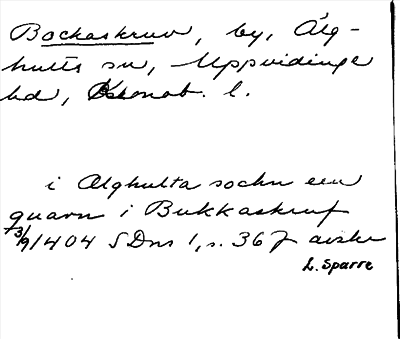 Bockaskruv, by, Älg-
hults sn, Uppvidinge
hd, Kronob. l.
i Älghulta sochn een
quarn i Bukkaskruf
13/9 1404 SDns 1, s. 367 avskr
L. Sparre